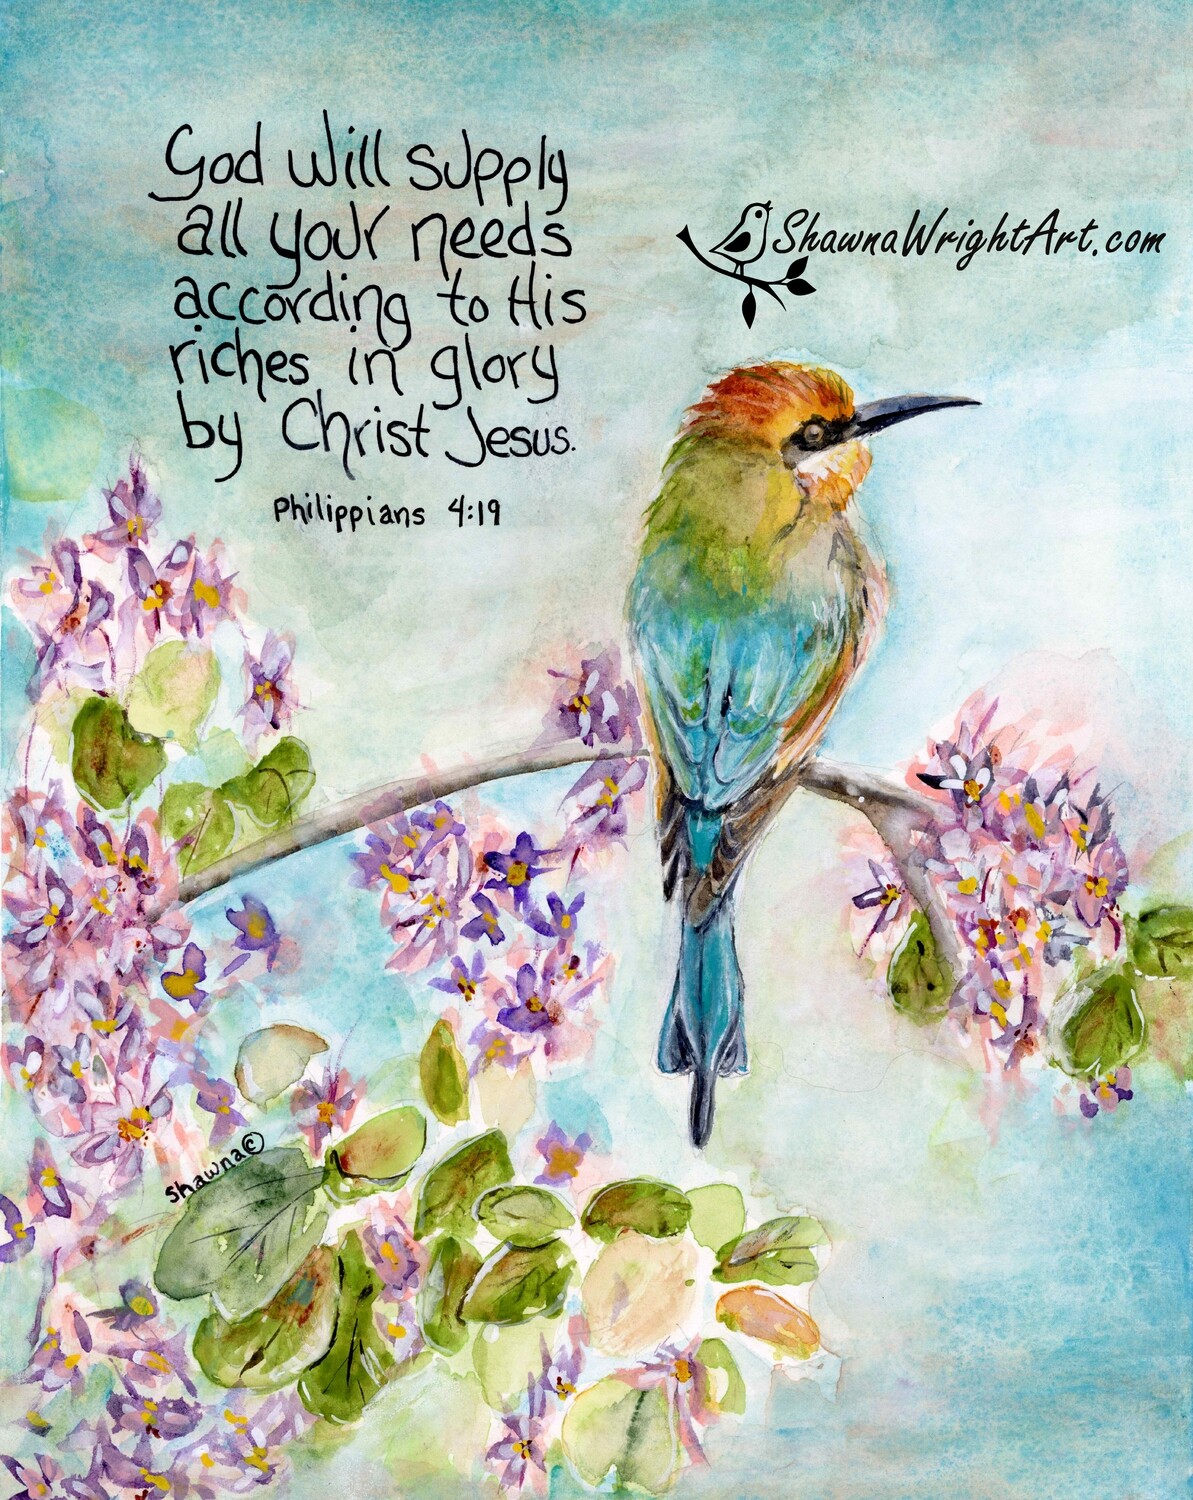 God will supply
all your needs
according to His
riches in glory
by Christ Jesus.
Philippians 4:19
ShawnaWrightArt.com
Shawna©